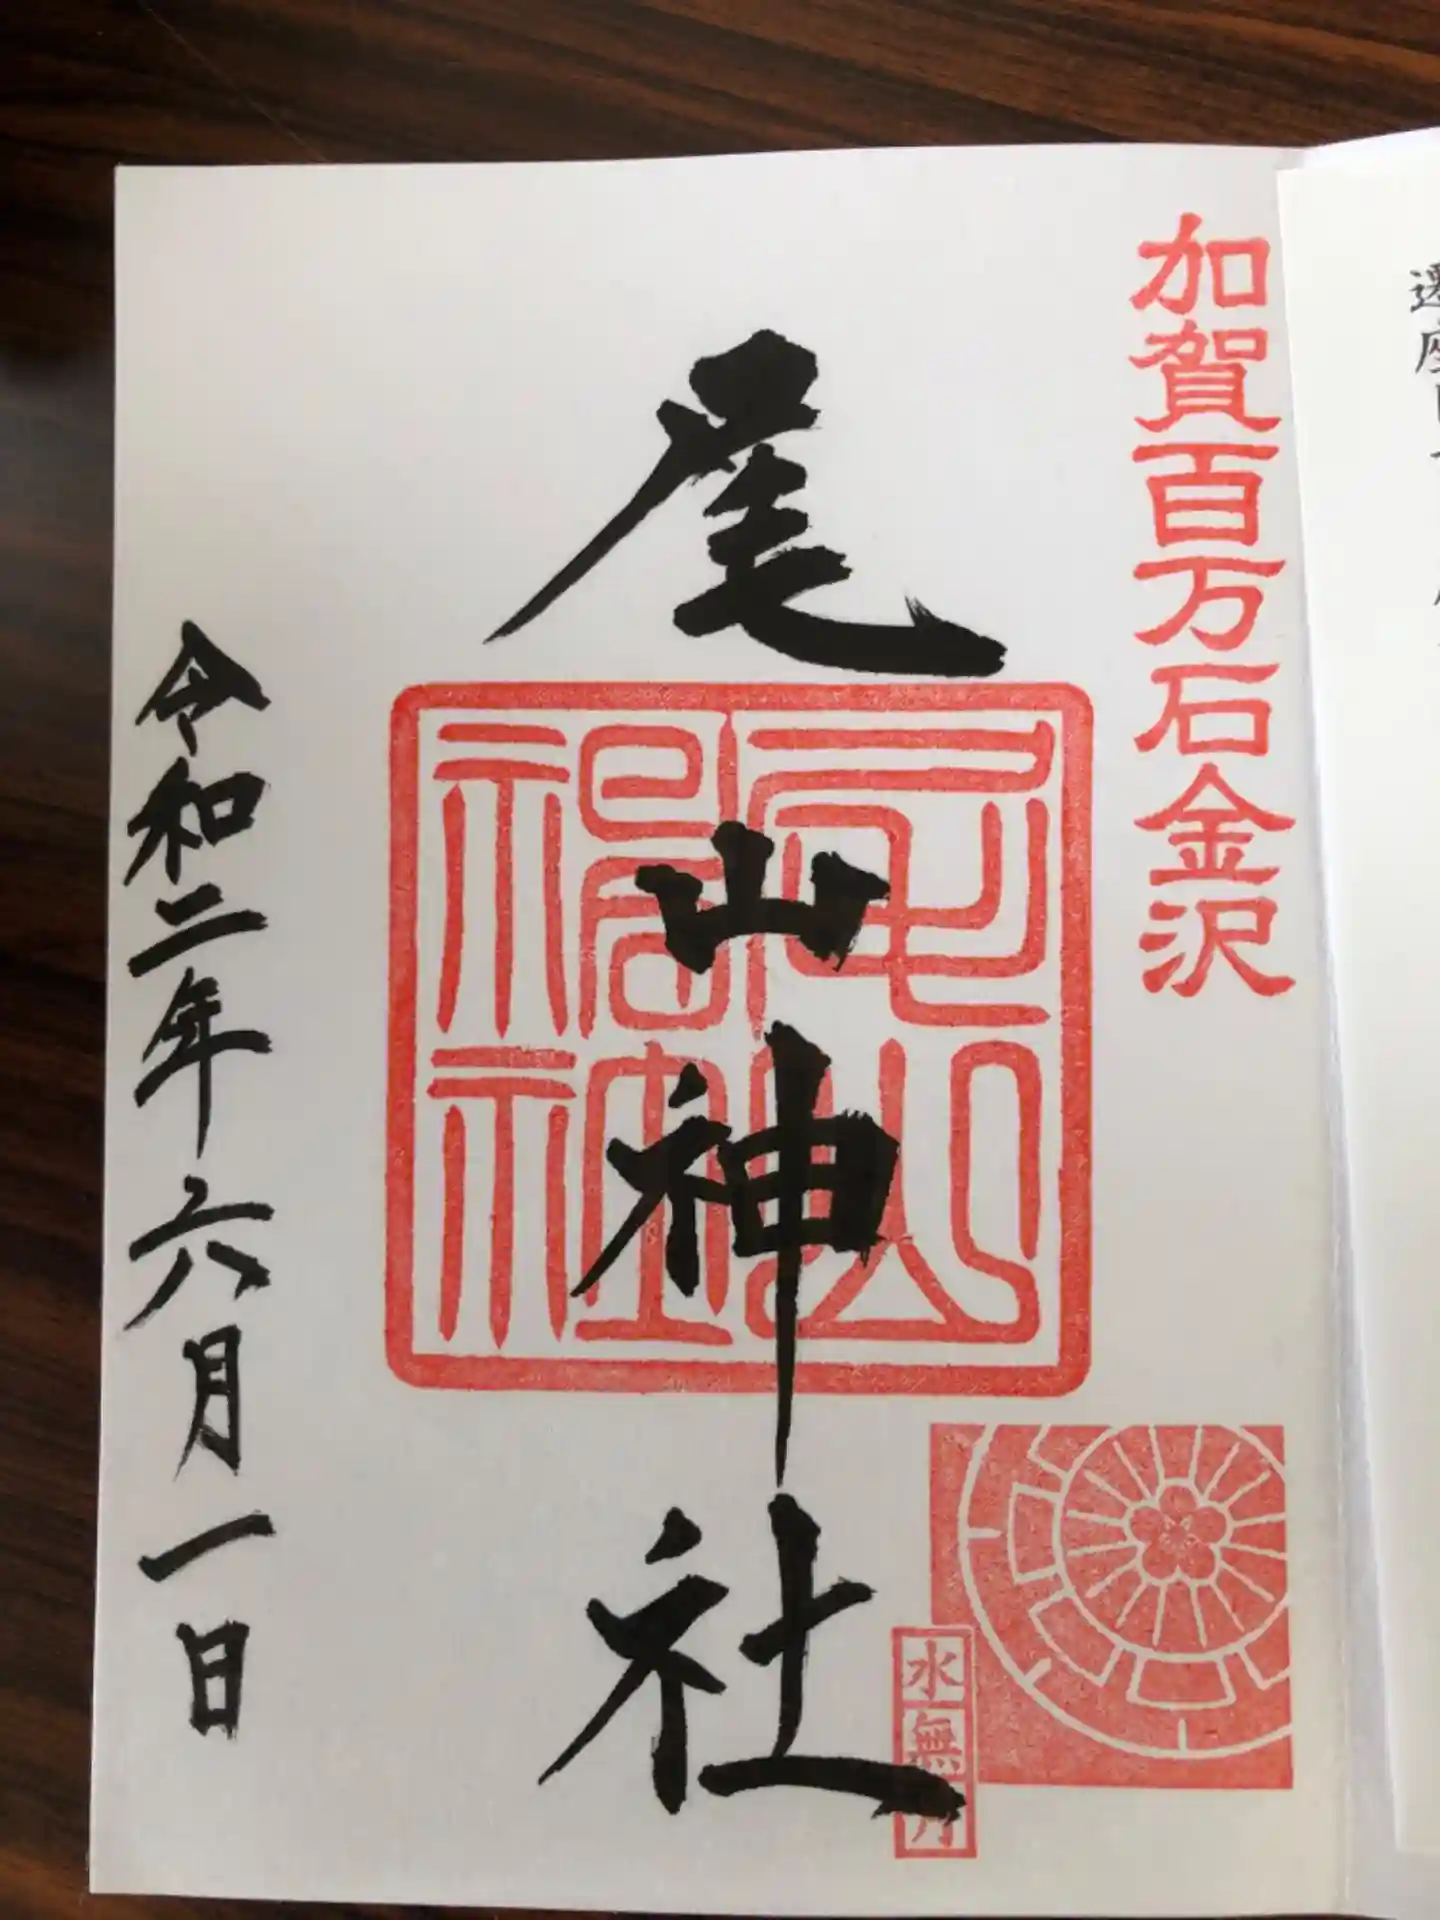 加賀百万石金沢
尾山神社
尾山神社
水無月
令和二年六月一日